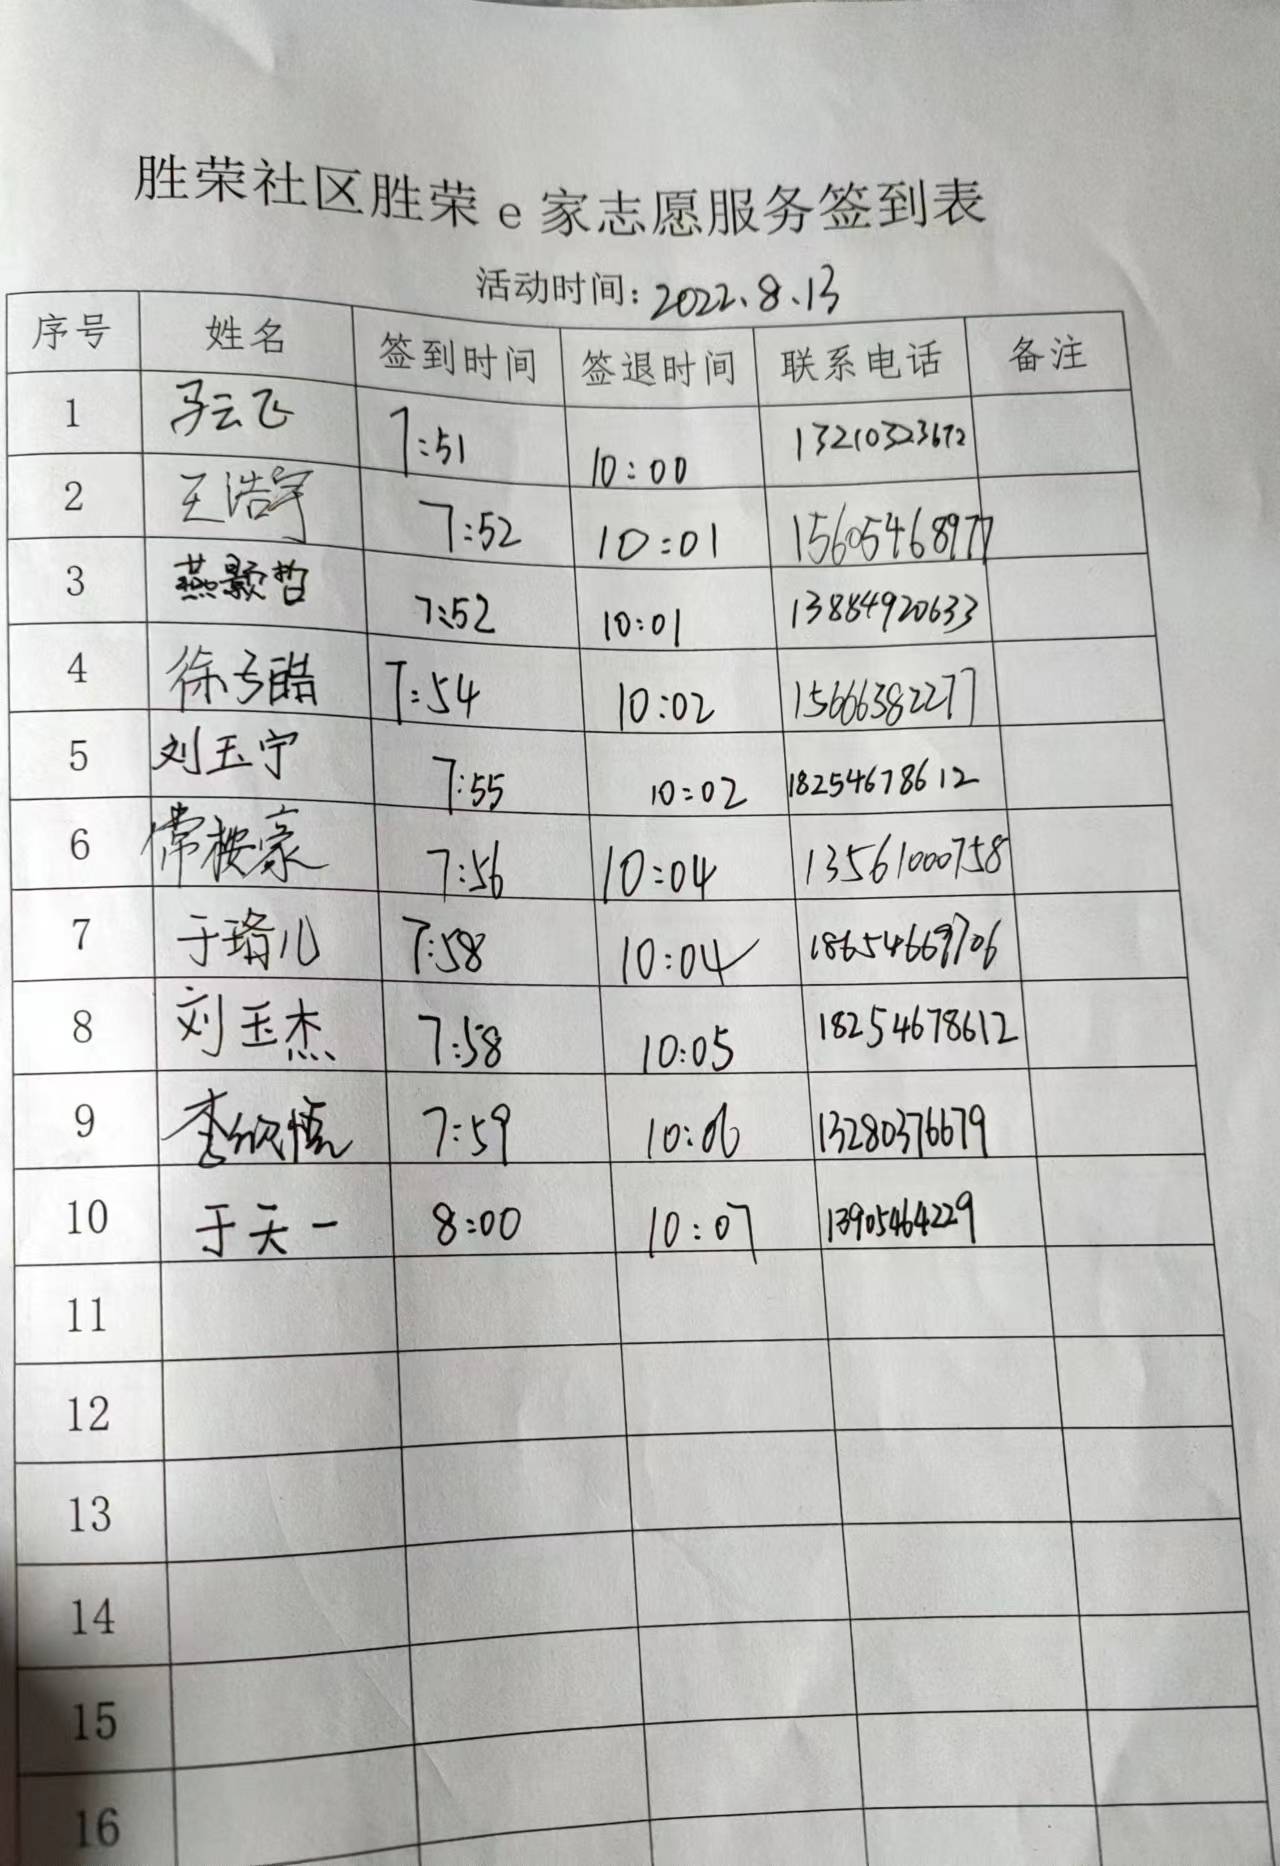 胜荣社区胜荣e家志愿服务签到表
活动时间：2022.8.13
序号 姓名 签到时间 签退时间 联系电话 备注
1 马云飞 7:51 10:00 13210323672
2 王浩宇 7:52 10:01 15605468977
3 燕颢哲 7:52 10:01 13884920633
4 徐 7:54 10:02 15666382277
5 刘玉宁 7:55 10:02 18254678612
6 常桉豪 7:56 10:04 13561000758
7 于 儿 7:58 10:04 18654669706
8 刘玉杰 7:58 10:05 18254678612
9 李欣 7:59 10:06 13280376679
10 于天一 8:00 10:07 13905464229
11
12
13
14
15
16